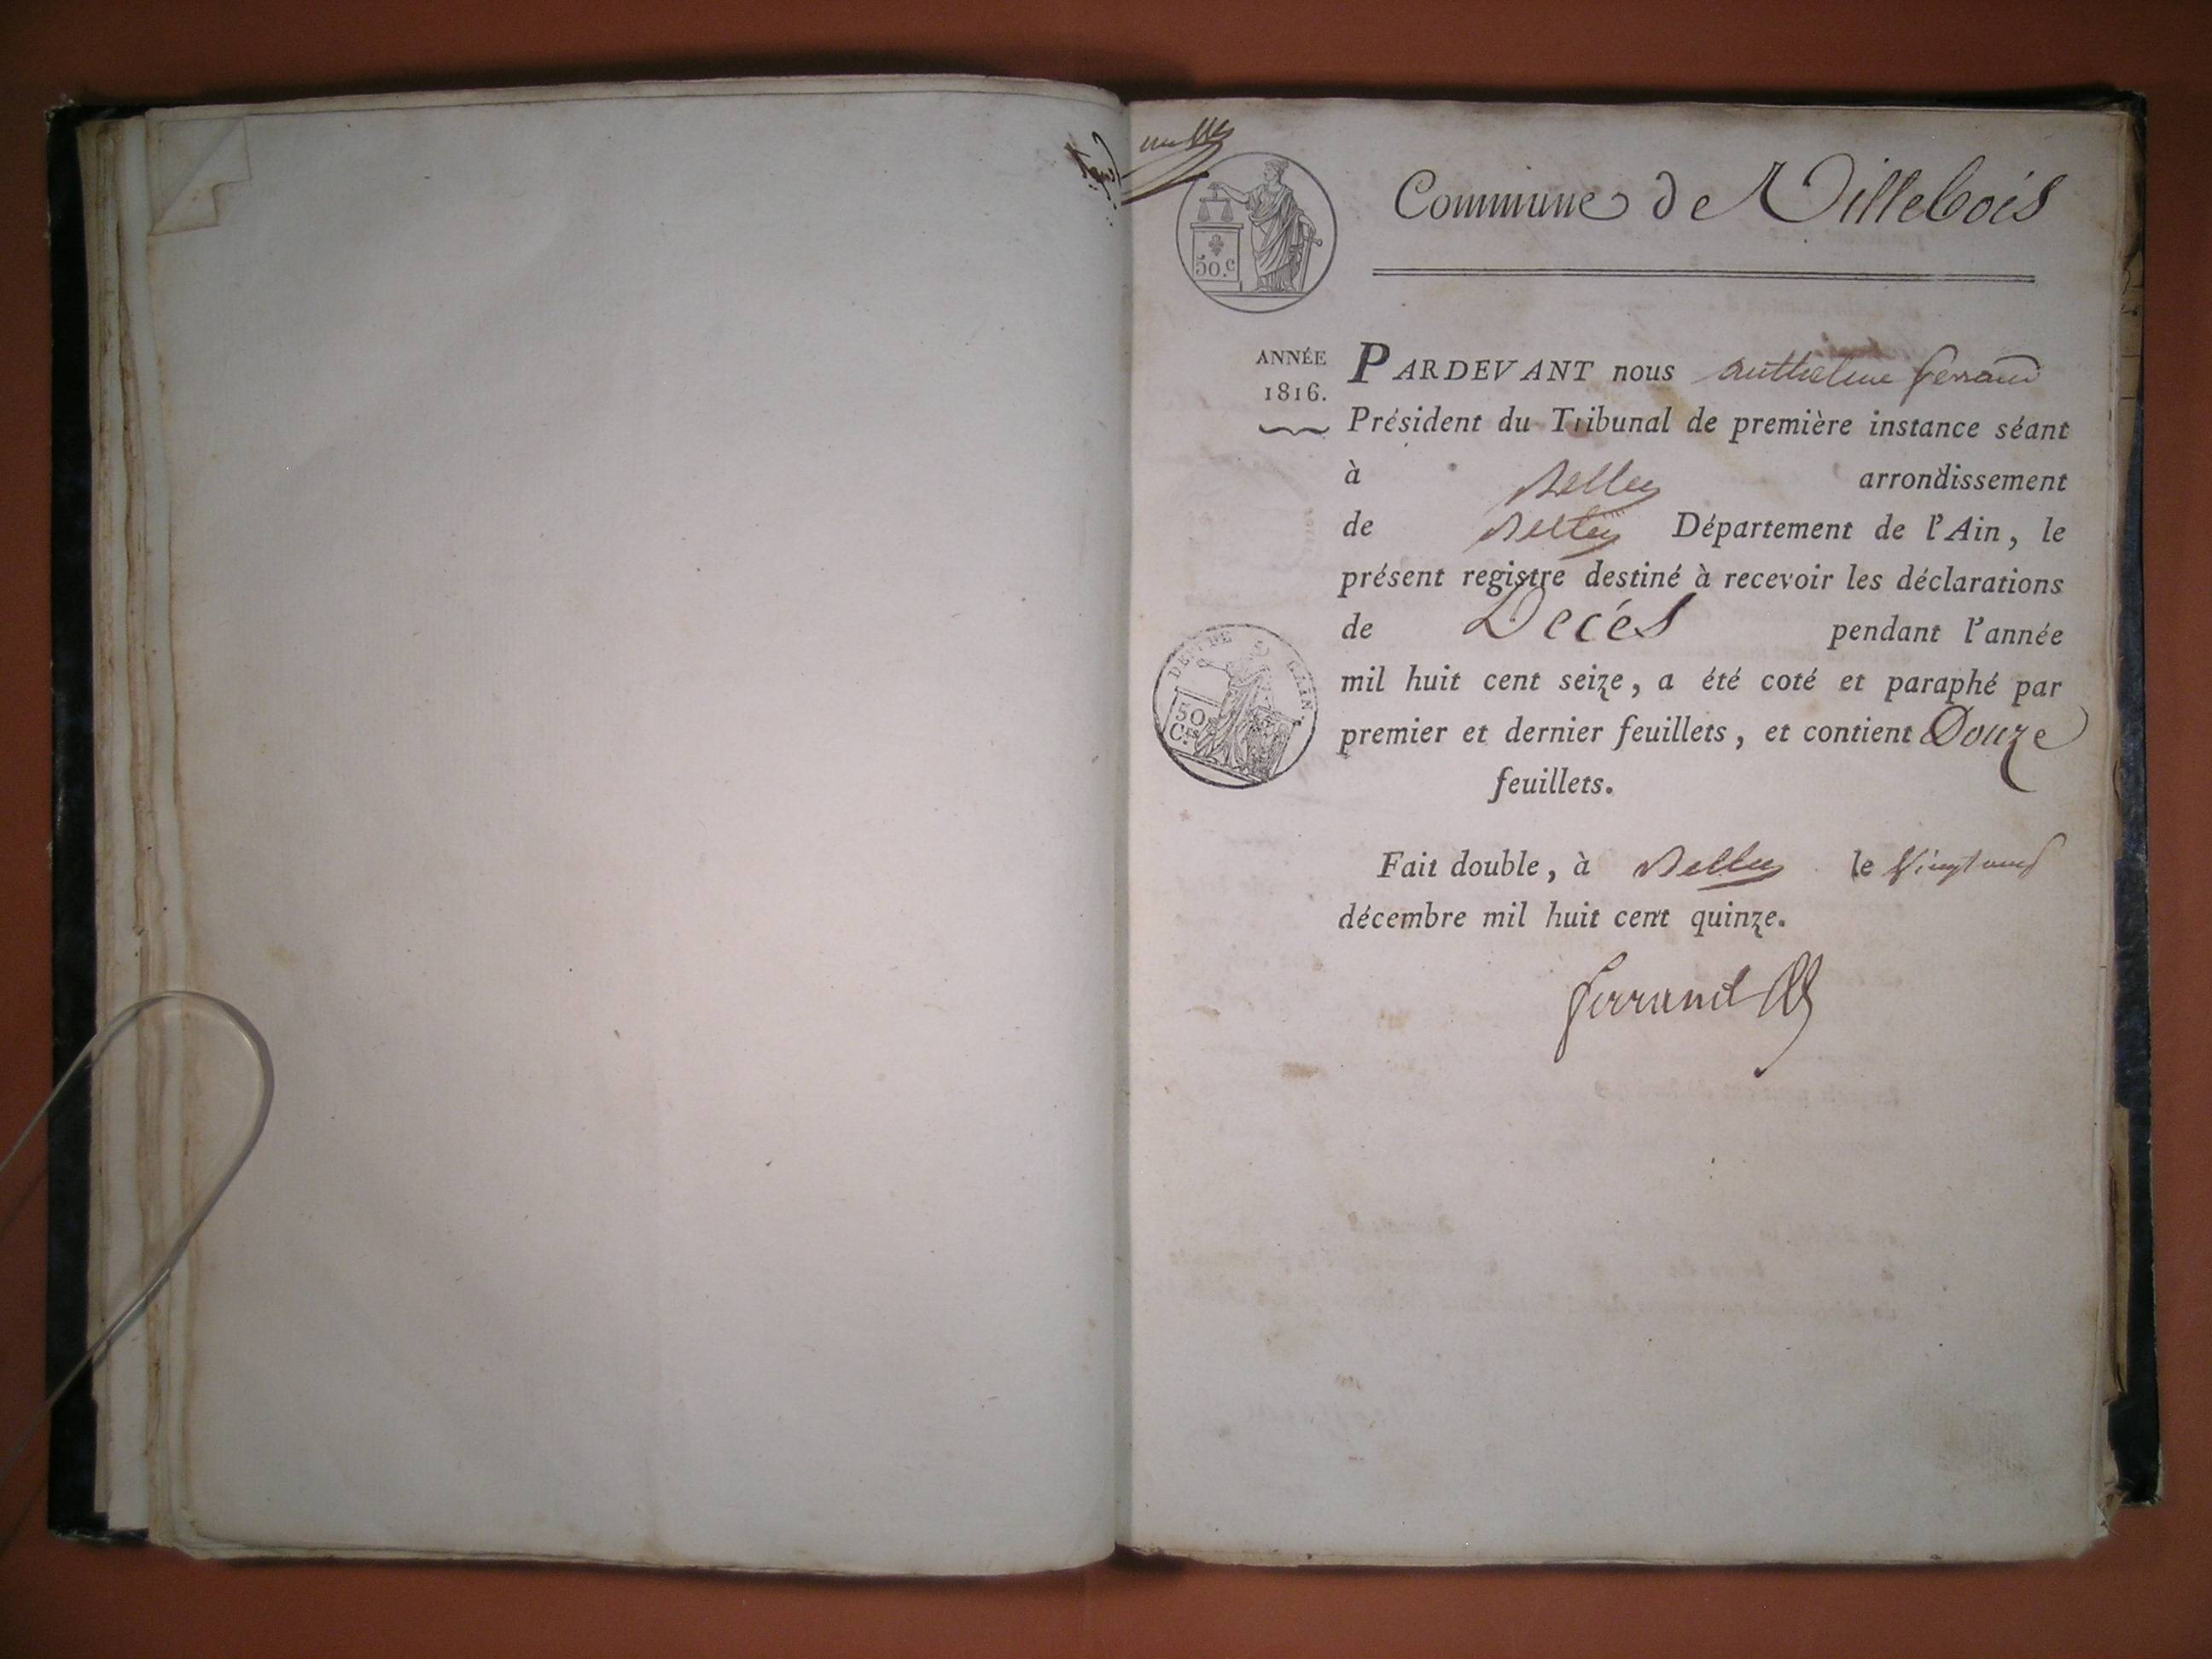 Commune de Villebois
50.c
ANNÉE
1816.
PARDEVANT nous Anthelme ferrand
Président du Tribunal de première instance séant
à Belley arrondissement
de Belley Département de l'Ain, le
présent registre destiné à recevoir les déclarations
de Decés pendant l'année
mil huit cent seize, a été coté et paraphé par
premier et dernier feuillets, et contient Douze
feuillets.
DEPT DE L'AIN.
50
Ces
Fait double, à Belley le Vingt
décembre mil huit cent quinze.
ferrand